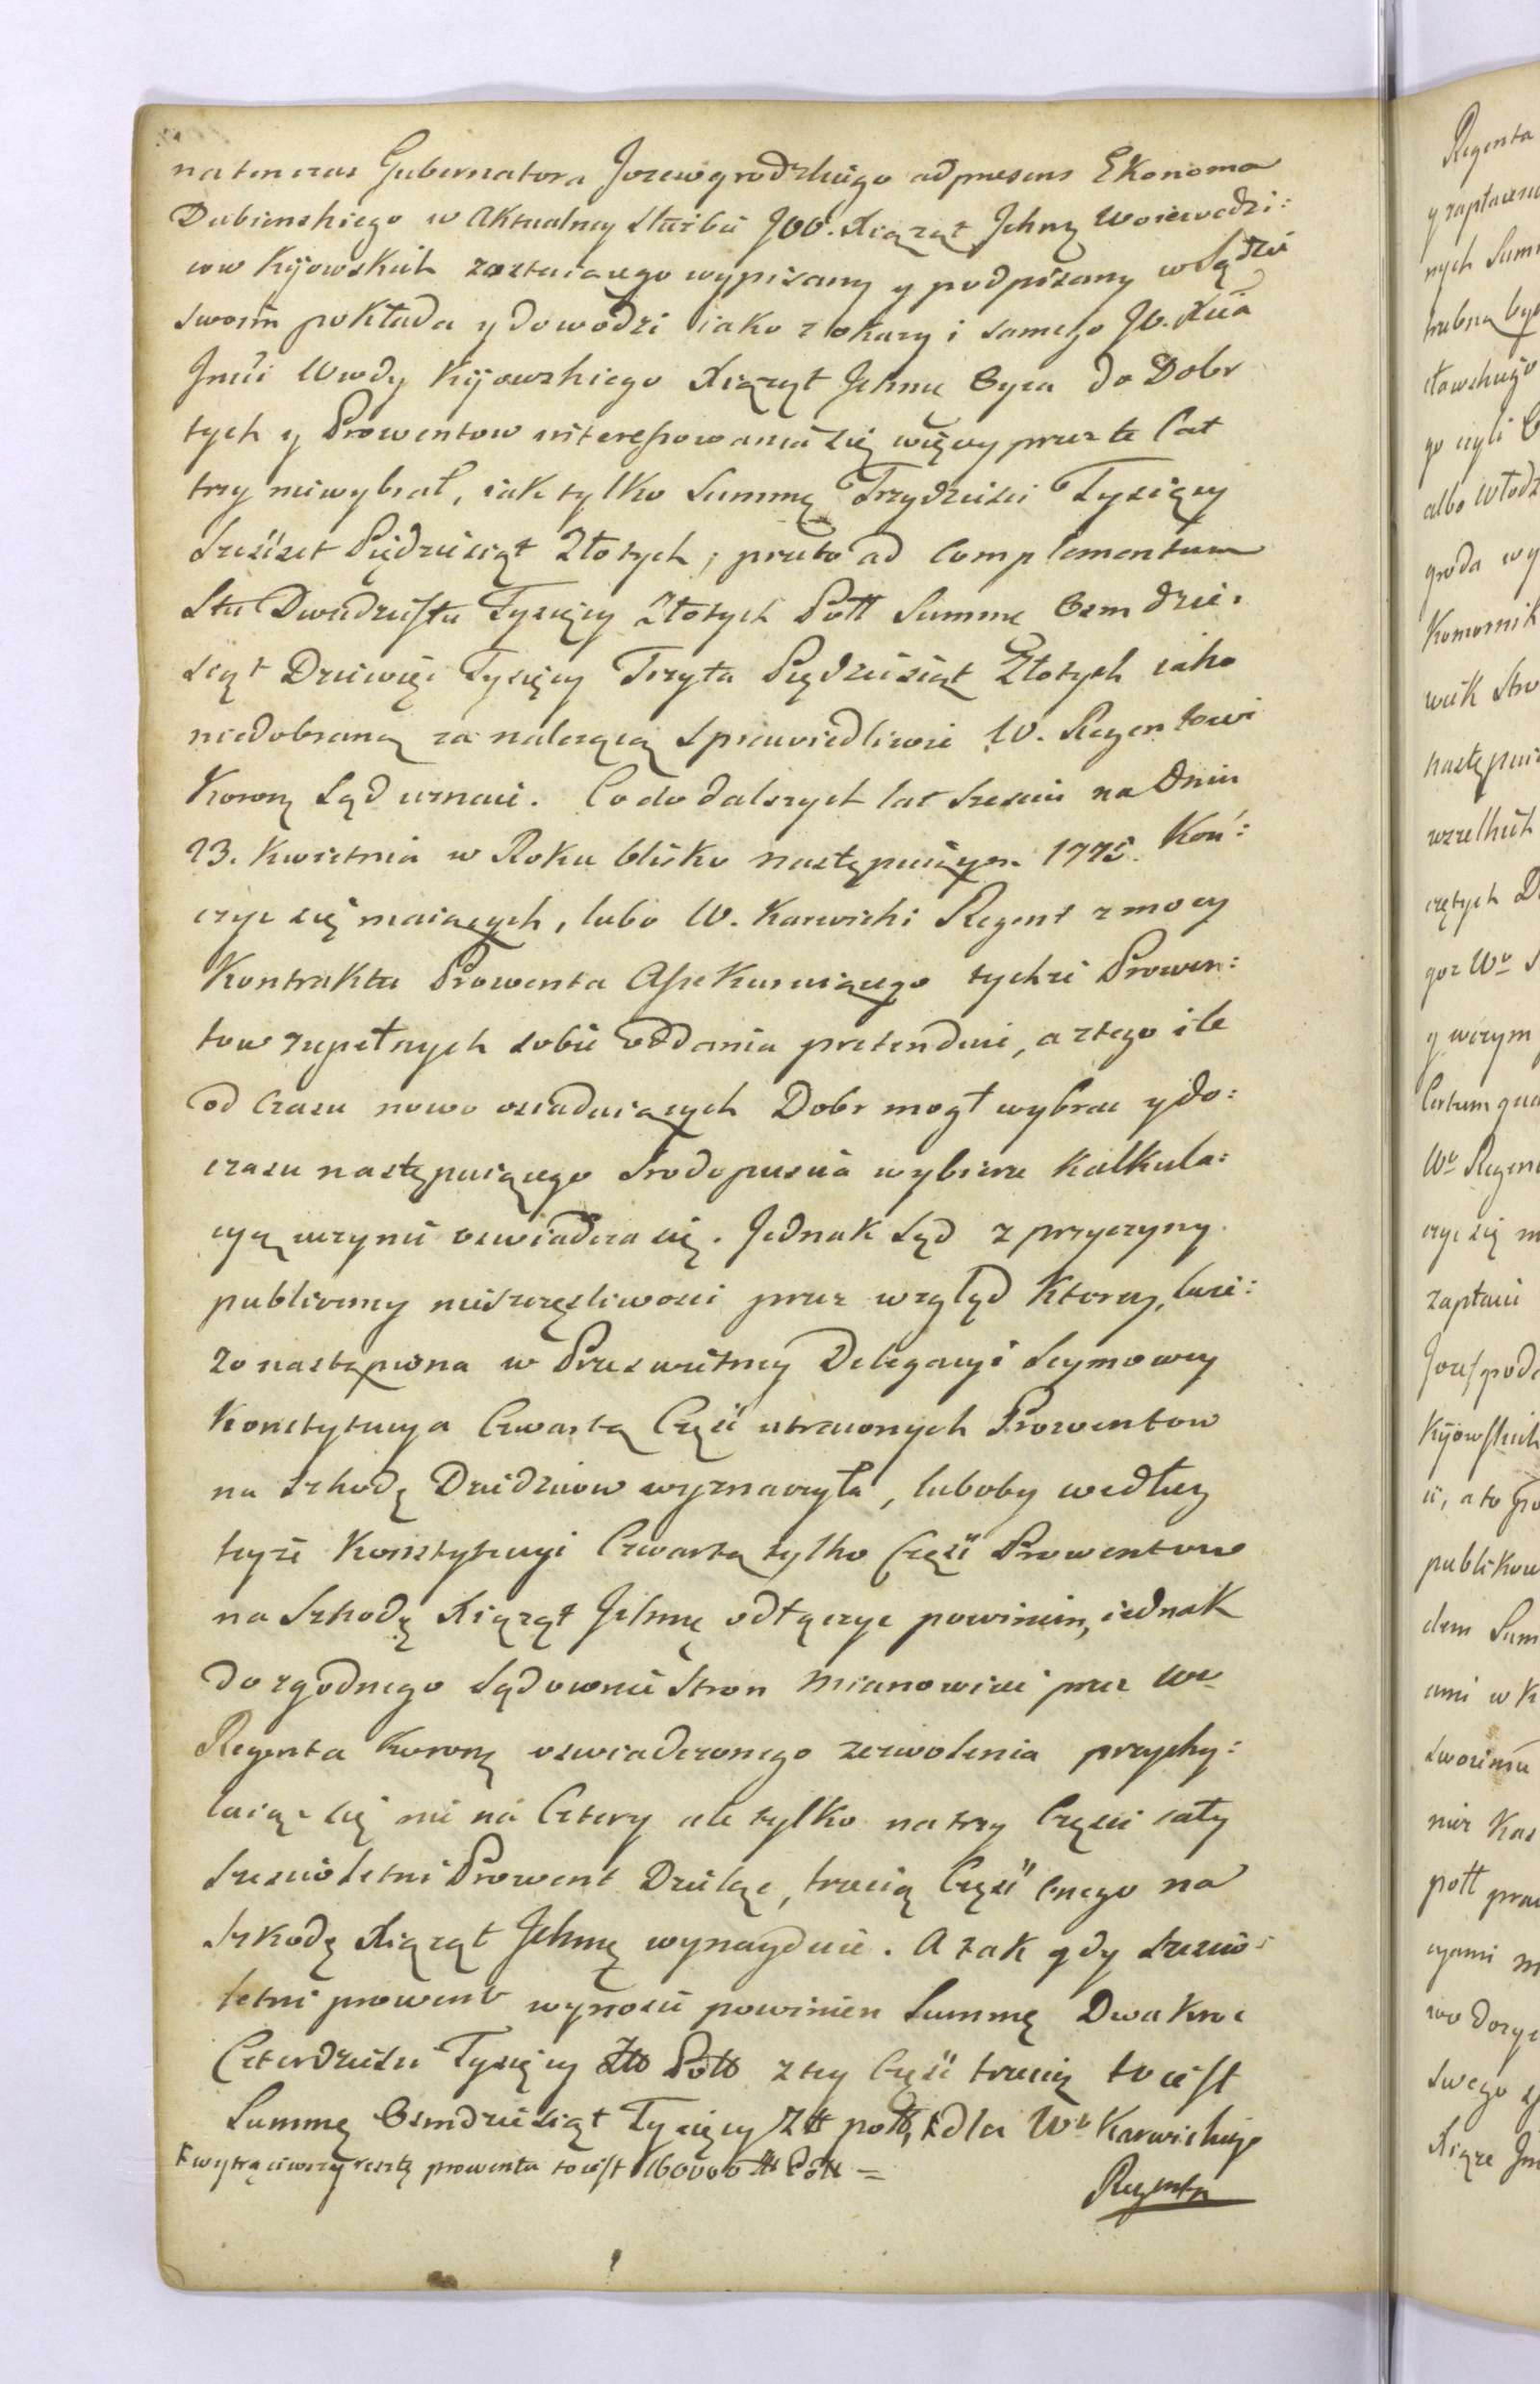 natenczas Gubernatora Jozewgrodzkiego adpresens Ekonoma
Dubienskiego w aktualney służbie JOO. Xiąząt Jchmę Woiewodzi:
cow Kijowskich zostaiącego wypisany y podpisany w Sądzie
swoim pokłada y dowodzi iako z okazyi samego JO. Xcia
Jmći Wwdy Kijowskiego Xiąząt Jchmę Oyca do Dobr
tych y Prowentow interessowania się więcey przez te Lat
trzy niewybrał, iak tylko Summę Trzydzieści Tysięcy
Sześćset Piędziesiąt Złotych, przeto ad Complementum
Stu Dwudziestu Tysięcy Złotych Poll Summę Osmdzie:
siąt Dziewięć Tysięcy Trzysta Piędziesiąt Złotych iako
niedobraną za należącą sprawiedliwie W. Regentowi
Korony Sąd uznaie. Co do dalszych lat sześciu na Dniu
23. Kwietnia w Roku blisko następuiącym 1775. Koń:
czyc się maiących, lubo W. Karwicki Regent z mocy
Kontraktu Prowenta Assekuruiącego tychże Prowen:
tow zupełnych sobie oddania pretenduie, a z tego ile
od Czasu nowo osiaduiących Dobr mogł wybrac y do:
czasu następuiącego Srodopuscia wybierze kalkula:
cyą uczynić oswiadcza się. Jednak Sąd z przyczyny
publiczney nieszczęśliwosci przez wzgląd ktorey, świe:
zo nastąpiona w Prześwietney Delegacyi Seymowey
Konstytucya Czwartą Część utraconych Prowentow
na szkodę Dziedzicow wyznaczyła, luboby według
teyże Konstytucyi Czwartą tylko Część Prowentow
na Szkodę Xiąząt Jchmę odłączyc powinien, iednak
do zgodnego sądownie Stron mianowicie przez Wo
Regenta Korony oswiadczonego zezwolenia przychy:
laiąc się nie na Cztery ale tylko na trzy Części cały
Szescioletni Prowent Dzieląc, trzecią Część onego na
szkodę Xiąząt Jchmę wynayduie. A tak gdy szescio:
letni prowent wynosić powinien Summę Dwakroc
Czterdzieści Tysięcy Złł Poll z tey Część trzecią to iest
Summę Osmdziesiąt Tysięcy Złł poll, ꝉ dla Wo Karwickiego
ꝉ wytrąciwszy resztę prowentu to iest 160000 złł Poll =
Regenta